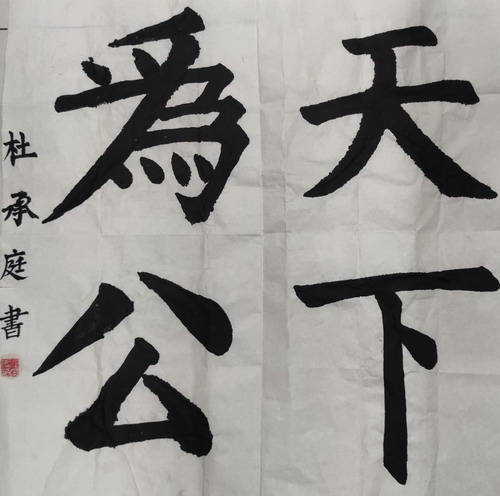 天下
為公
杜承庭書